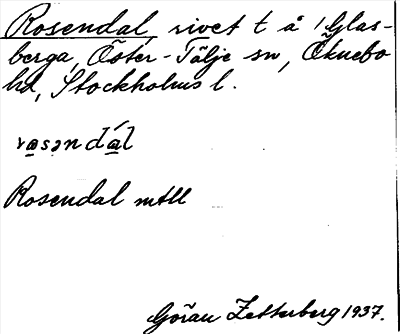 Rosendal rivet t å 1 Glas-
berga, Öster-Tälje sn, Öknebo
hd, Stockholms l.
rasəndál
Rosendal mtll
Göran Zetterberg 1937.